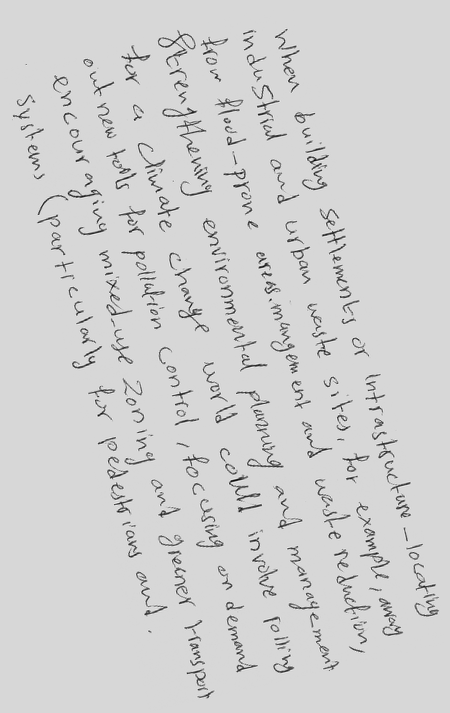 When building settlements or infrastructure - locating
industrial and urban waste sites, for example, away
from flood-prone areas. mangement and waste reduction,
Strengthening environmental planning and management
for a climate change world could involve rolling
out new tools for pollution control, focusing on demand
encouraging mixed-use zoning and greener transport
systems (particularly for pedestrians and.